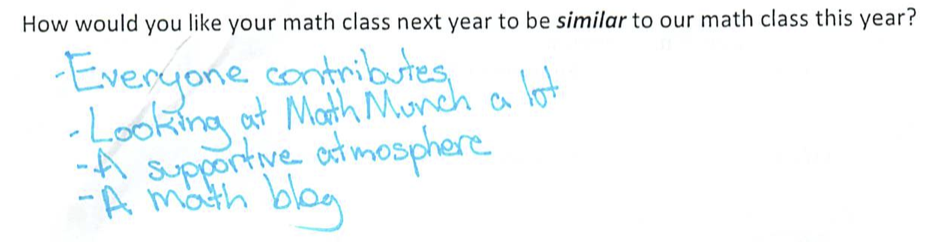 How would you like your math class next year to be similar to our math class this year?
-Everyone contributes
-Looking at Math Munch a lot
-A supportive atmosphere
-A math blog